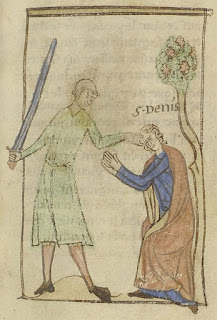 S·DENIS